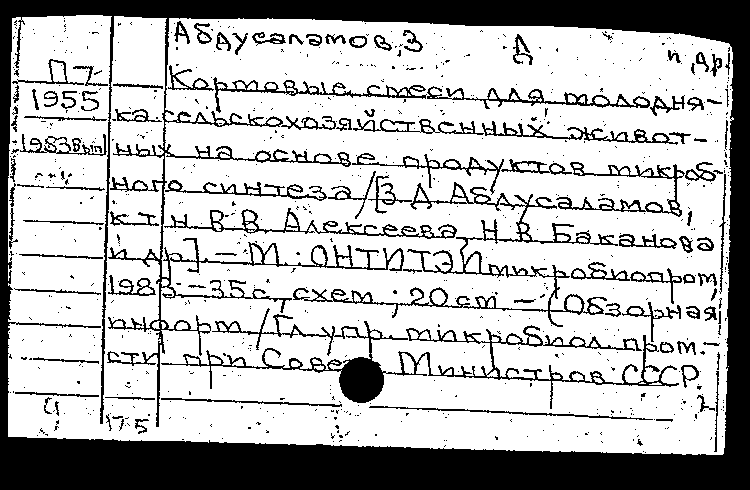 Абдусаламов, З Д и др.
П7 Кормовые смеси для молодня-
1955 ка сельскохозяйственных живот-
1983 вып ных на основе продуктов микроб-
ного синтеза / [З Д Абдусаламов,
к т н В В Алексеева, Н В Баканова
и др] – М : ОНТИТЭИмикробиопром,
1983 – 35 с, схем ; 20 см – (Обзорная
информ / Гл упр. микробиол пром.-
сти при Совете Министров СССР.
175